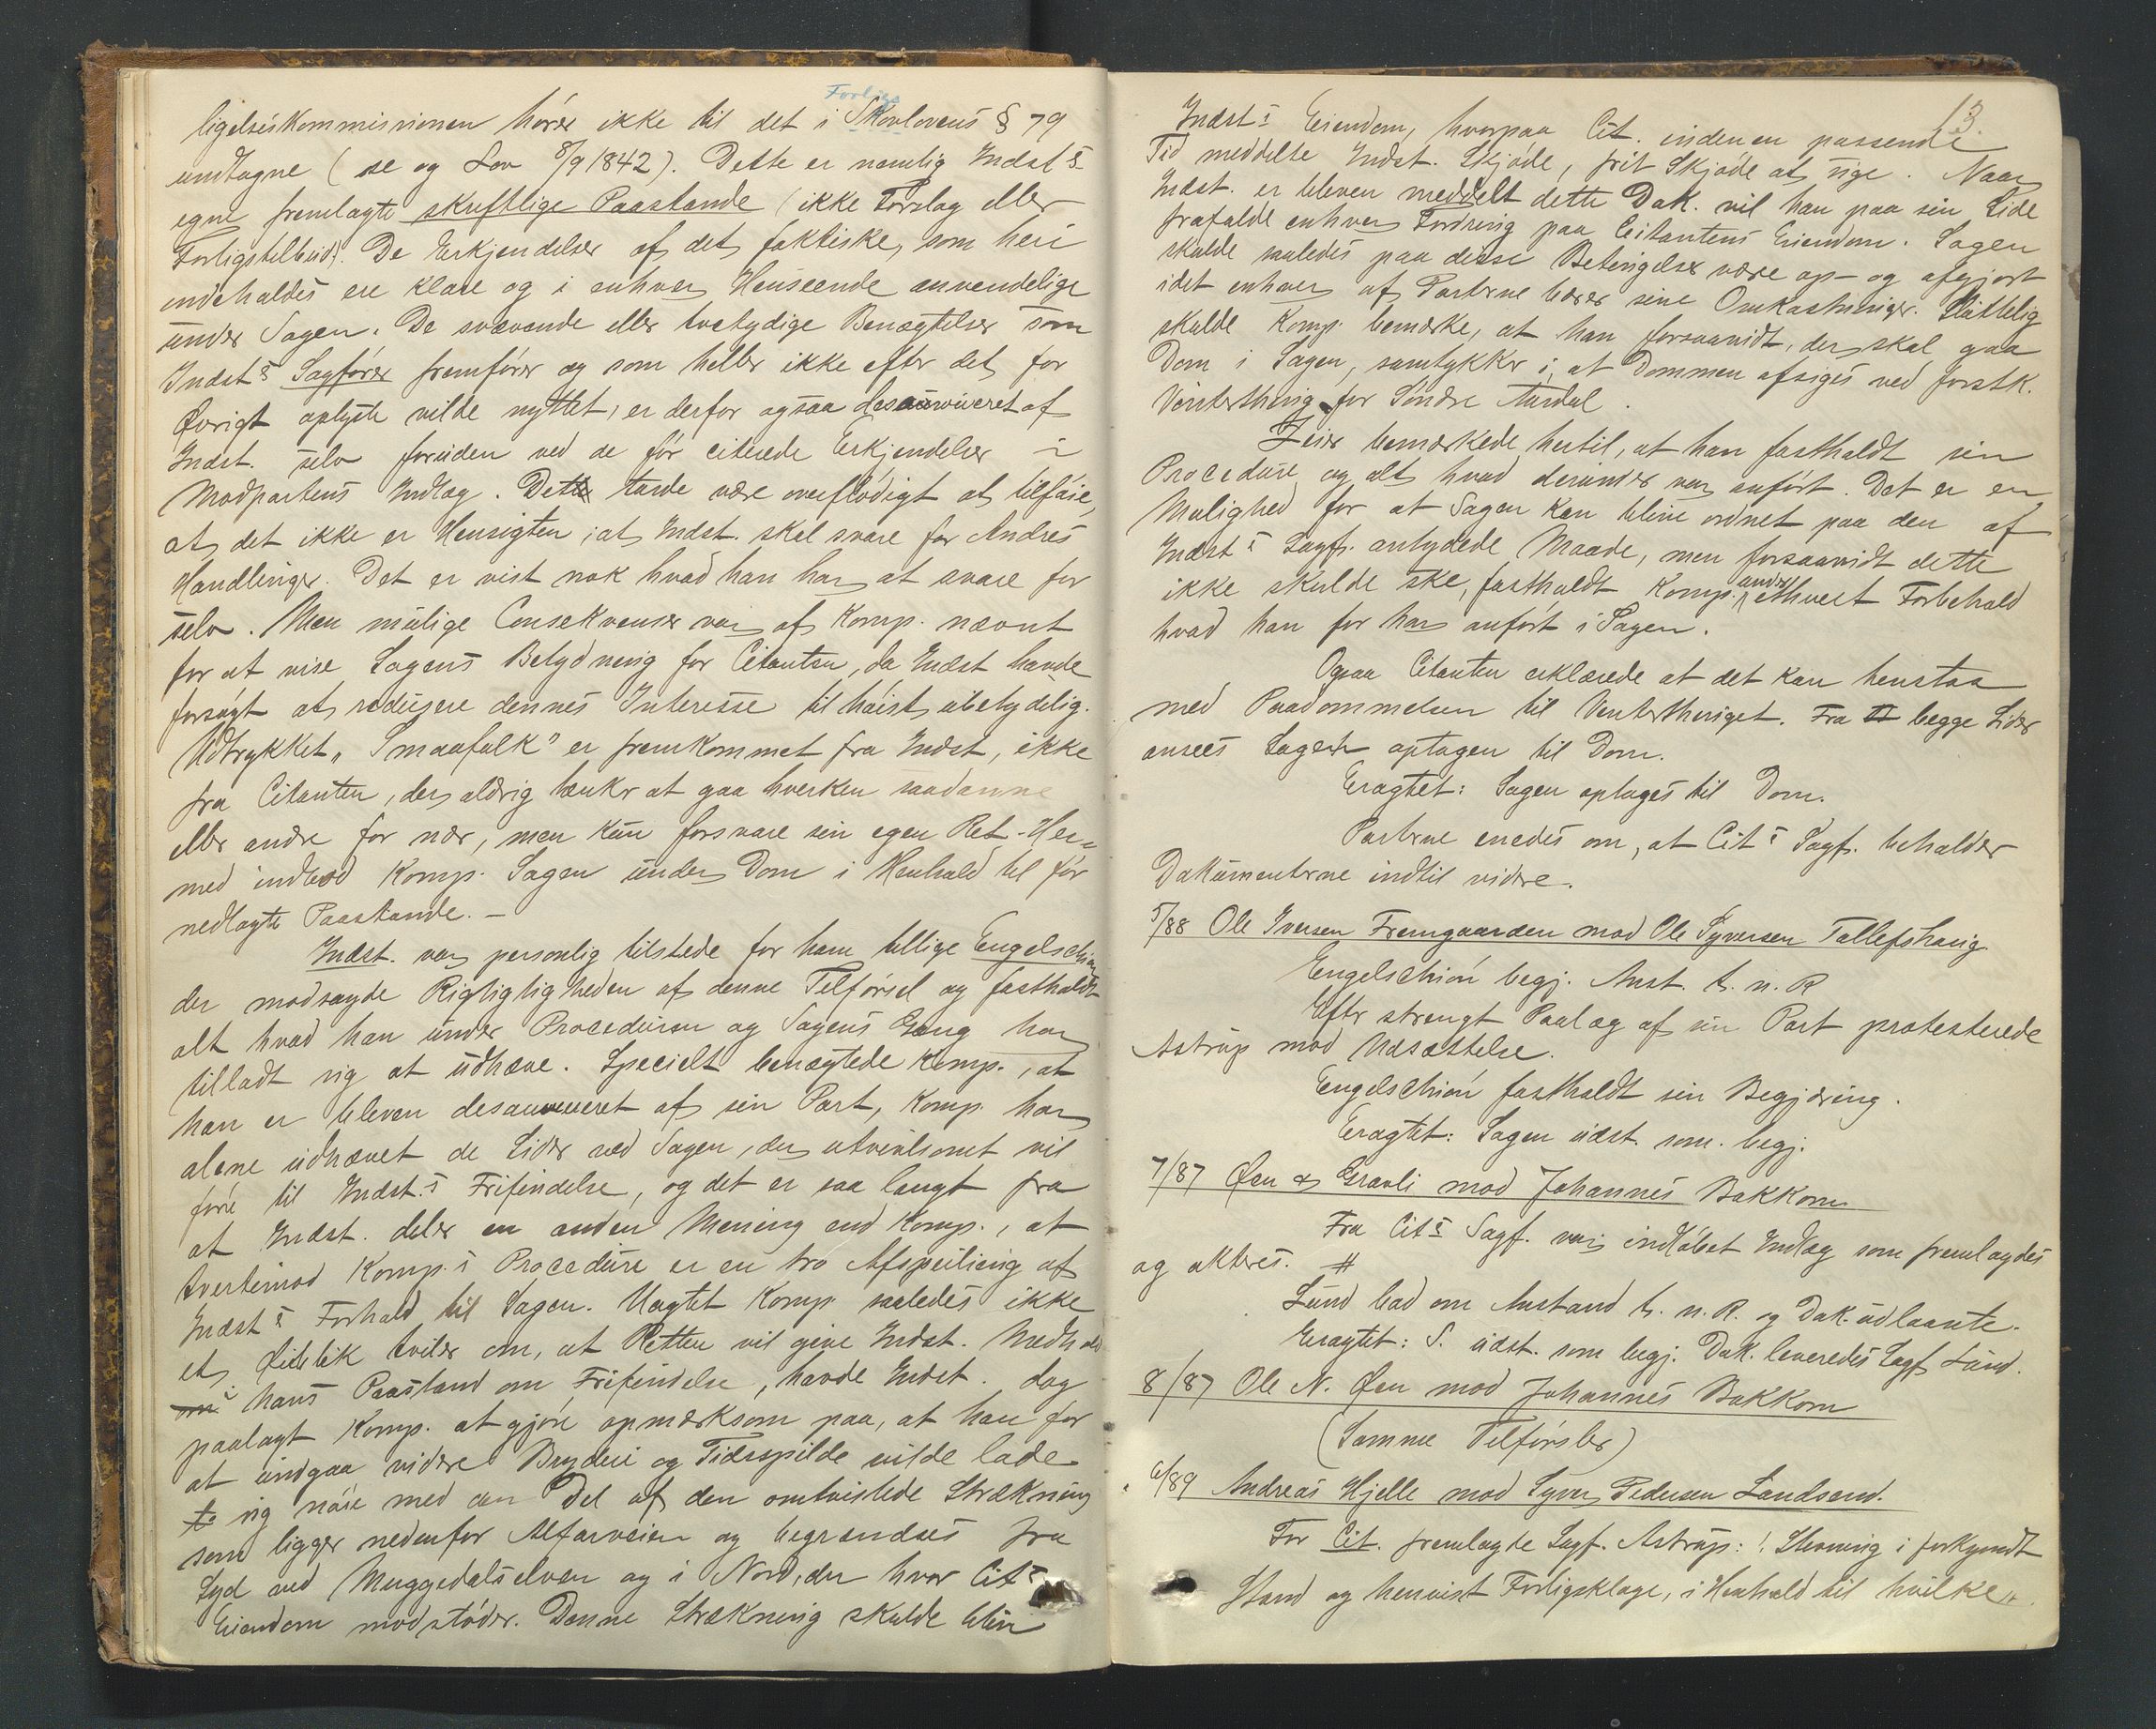 Forligs
ligelseskommissionen hører ikke til det i Skovlovens § 79
undtagne (se og Lov 8/9 1842). Dette er nemlig Indst.s
egne fremlagte skriftlige Paastande (ikke Forslag eller
Forligstilbud). De Erkjendelser af det faktiske, som heri
indeholdes ere klare og i enhver Henseende anvendelige
under Sagen. De svævende eller tvetydige Benægtelser som
Indst.s Sagfører fremfører og som heller ikke efter det for
Øvrigt oplyste vilde nyttet, er derfor ogsaa desauvoueret af
Indst. selv foruden ved de før citerede Erkjendelser i
Modpartens Indlæg. Dette turde være overflødigt at tilføie,
at det ikke er Hensigten, at Indst. skal svare for Andres
Handlinger. Det er vist nok hvad han har at svare for
selv. Men mulige Consekvenser var af Komp. nævnt
for at vise Sagens Betydning for Citanten, da Indst havde
forsøgt at redusere dennes Interesse til høist ubetydelig.
Udtrykket "Smaafolk" er fremkommet fra Indst, ikke
fra Citanten, der aldrig tænker at gaa hverken saadanne
eller andre for nær, men kun forsvare sin egen Ret. Her=
med indlod Komp. Sagen under Dom i Henhold til før
nedlagte Paastande. –
Indst. var personlig tilstede for ham tillige Engelschiøn
der modsagde Rigtigligheden af denne Tilførsel og fastholdt
alt hvad han under Proceduren og Sagens Gang har
tilladt sig at udhæve. Specielt benægtede Komp., at
han er bleven desauvoueret af sin Part, Komp. har
alene udhævet de Sider ved Sagen, der utvivlsomt vil
føre til Indst.s Frifindelse, og det er saa langt fra
at Indst. deler en anden Mening end Komp., at
tvertimod Komp.s Procedure er en tro Afspeiling af
Indst.s Forhold til Sagen. Uagtet Komp saaledes ikke
et Øieblik tviler om, at Retten vil give Indst. Medhold
om i hans Paastand om Frifindelse, havde Indst. dog
paalagt Komp. at gjøre opmærksom paa, at han for
at undgaa videre Bryderi og Tidsspilde vilde lade
te sig nøie med den Del af den omtvistede Strækning
som ligger nedenfor Alfarveien og begrændses fra
Syd ved Muggedalselven og i Nord, der hvor Cit.s
Eiendom modstøder. Denne Strækning skulde blive
13.
Indst.s Eiendom, hvorpaa Cit. inden en passende
Tid meddelte Indst. Skjøde, frit Skjøde at sige. Naar
Indst. er bleven meddelt dette Dok. vil han paa sin Side
frafalde enhver Fordring paa Citantens Eiendom. Sagen
skulde saaledes paa disse Betingelser være op- og afgjort
idet enhver af Parterne bærer sine Omkostninger. Sluttelig
skulde Komp. bemærke, at han forsaavidt, der skal gaa
Dom i Sagen, samtykker i, at Dommen afsiges ved førstk.
Vinterthing for Søndre Aurdal.
Zeier bemærkede hertil, at han fastholdt sin
Procedure og alt hvad derunder var anført. Det er en
Mulighed for at Sagen kan blive ordnet paa den af
Indst.s Sagf. antydede Maade, men forsaavidt dette
ikke skulde ske, fastholdt Komp. under ethvert Forbehold
hvad han før har anført i Sagen.
Ogsaa Citanten erklærede at det kan henstaa
med Paadommelsen til Vinterthinget. Fra begge Sider
ansees Sagen optagen til Dom.
Eragtet: Sagen optages til Dom.
Parterne enedes om, at Cit.s Sagf. beholder
Dokumenterne indtil videre.
5/88 Ole Iversen Fremgaarden mod Ole Syversen Tollefshaug
Engelschiøn begj. Anst. t. n. R
Efter strengt Paalæg af sin Part protesterede
Astrup mod Udsættelse.
Engelschiøn fastholdt sin Begjæring.
Eragtet: Sagen udst. som begj.
7/87 Øen & Gravli mod Johannes Bakkom
Fra Cit.s Sagf. var indløbet Indlæg som fremlagdes
og akteres. #
Lund bad om Anstand t. n. R. og Dok. udlaante.
Eragtet: S. udst. som begj. Dok. leveredes Sagf. Lund.
8/87 Ole N. Øen mod Johannes Bakkom
(Samme Tilførsler)
6/89 Andreas Hjelle mod Syver Pedersen Landsend.
For Cit. fremlagde Sagf. Astrup: 1. Stevning i forkyndt
Stand og henvist Forligsklage, i Henhold til hvilke